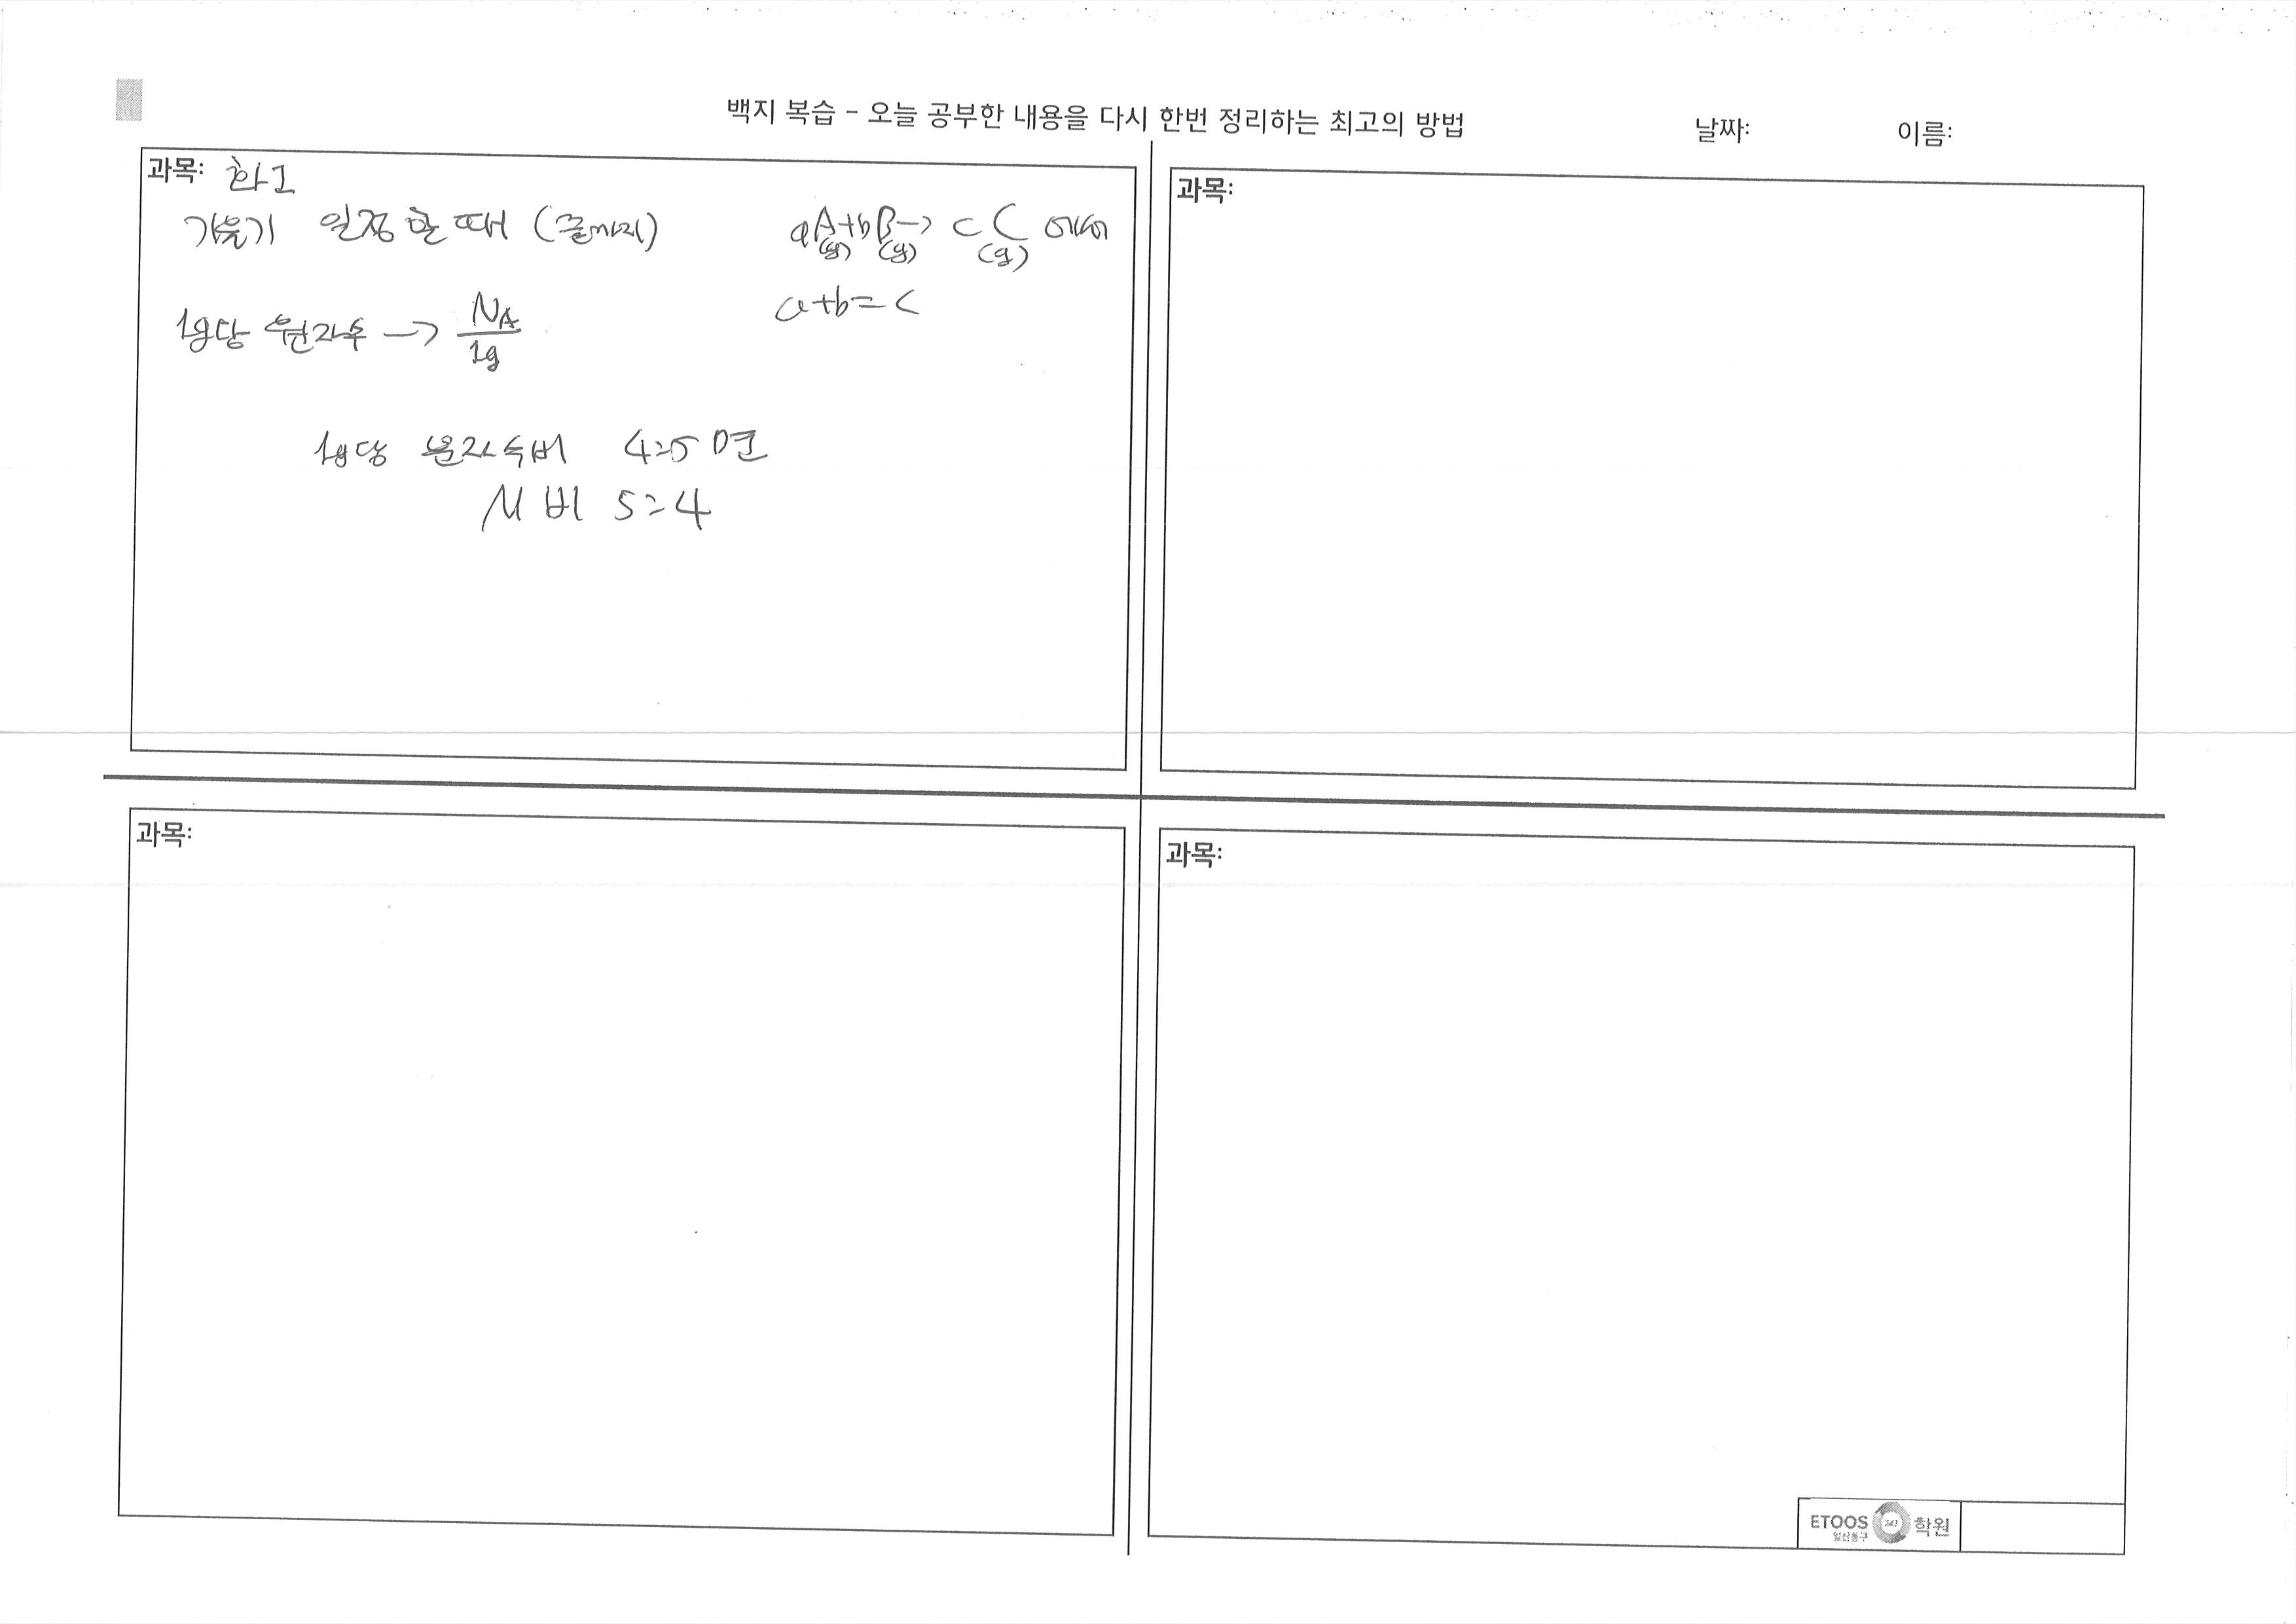 백지 복습 - 오늘 공부한 내용을 다시 한번 정리하는 최고의 방법 날짜: 이름:
과목: 화1
기울기 일정할 때 aA(g)+bB(g)→ cC(g) 에서
a+b=c
1g당 원자수 → N_A/1g
1g당 분자수비 4:5 면
M 비 5:4
과목:
과목:
과목:
ETOOS 247 학원
일산동구